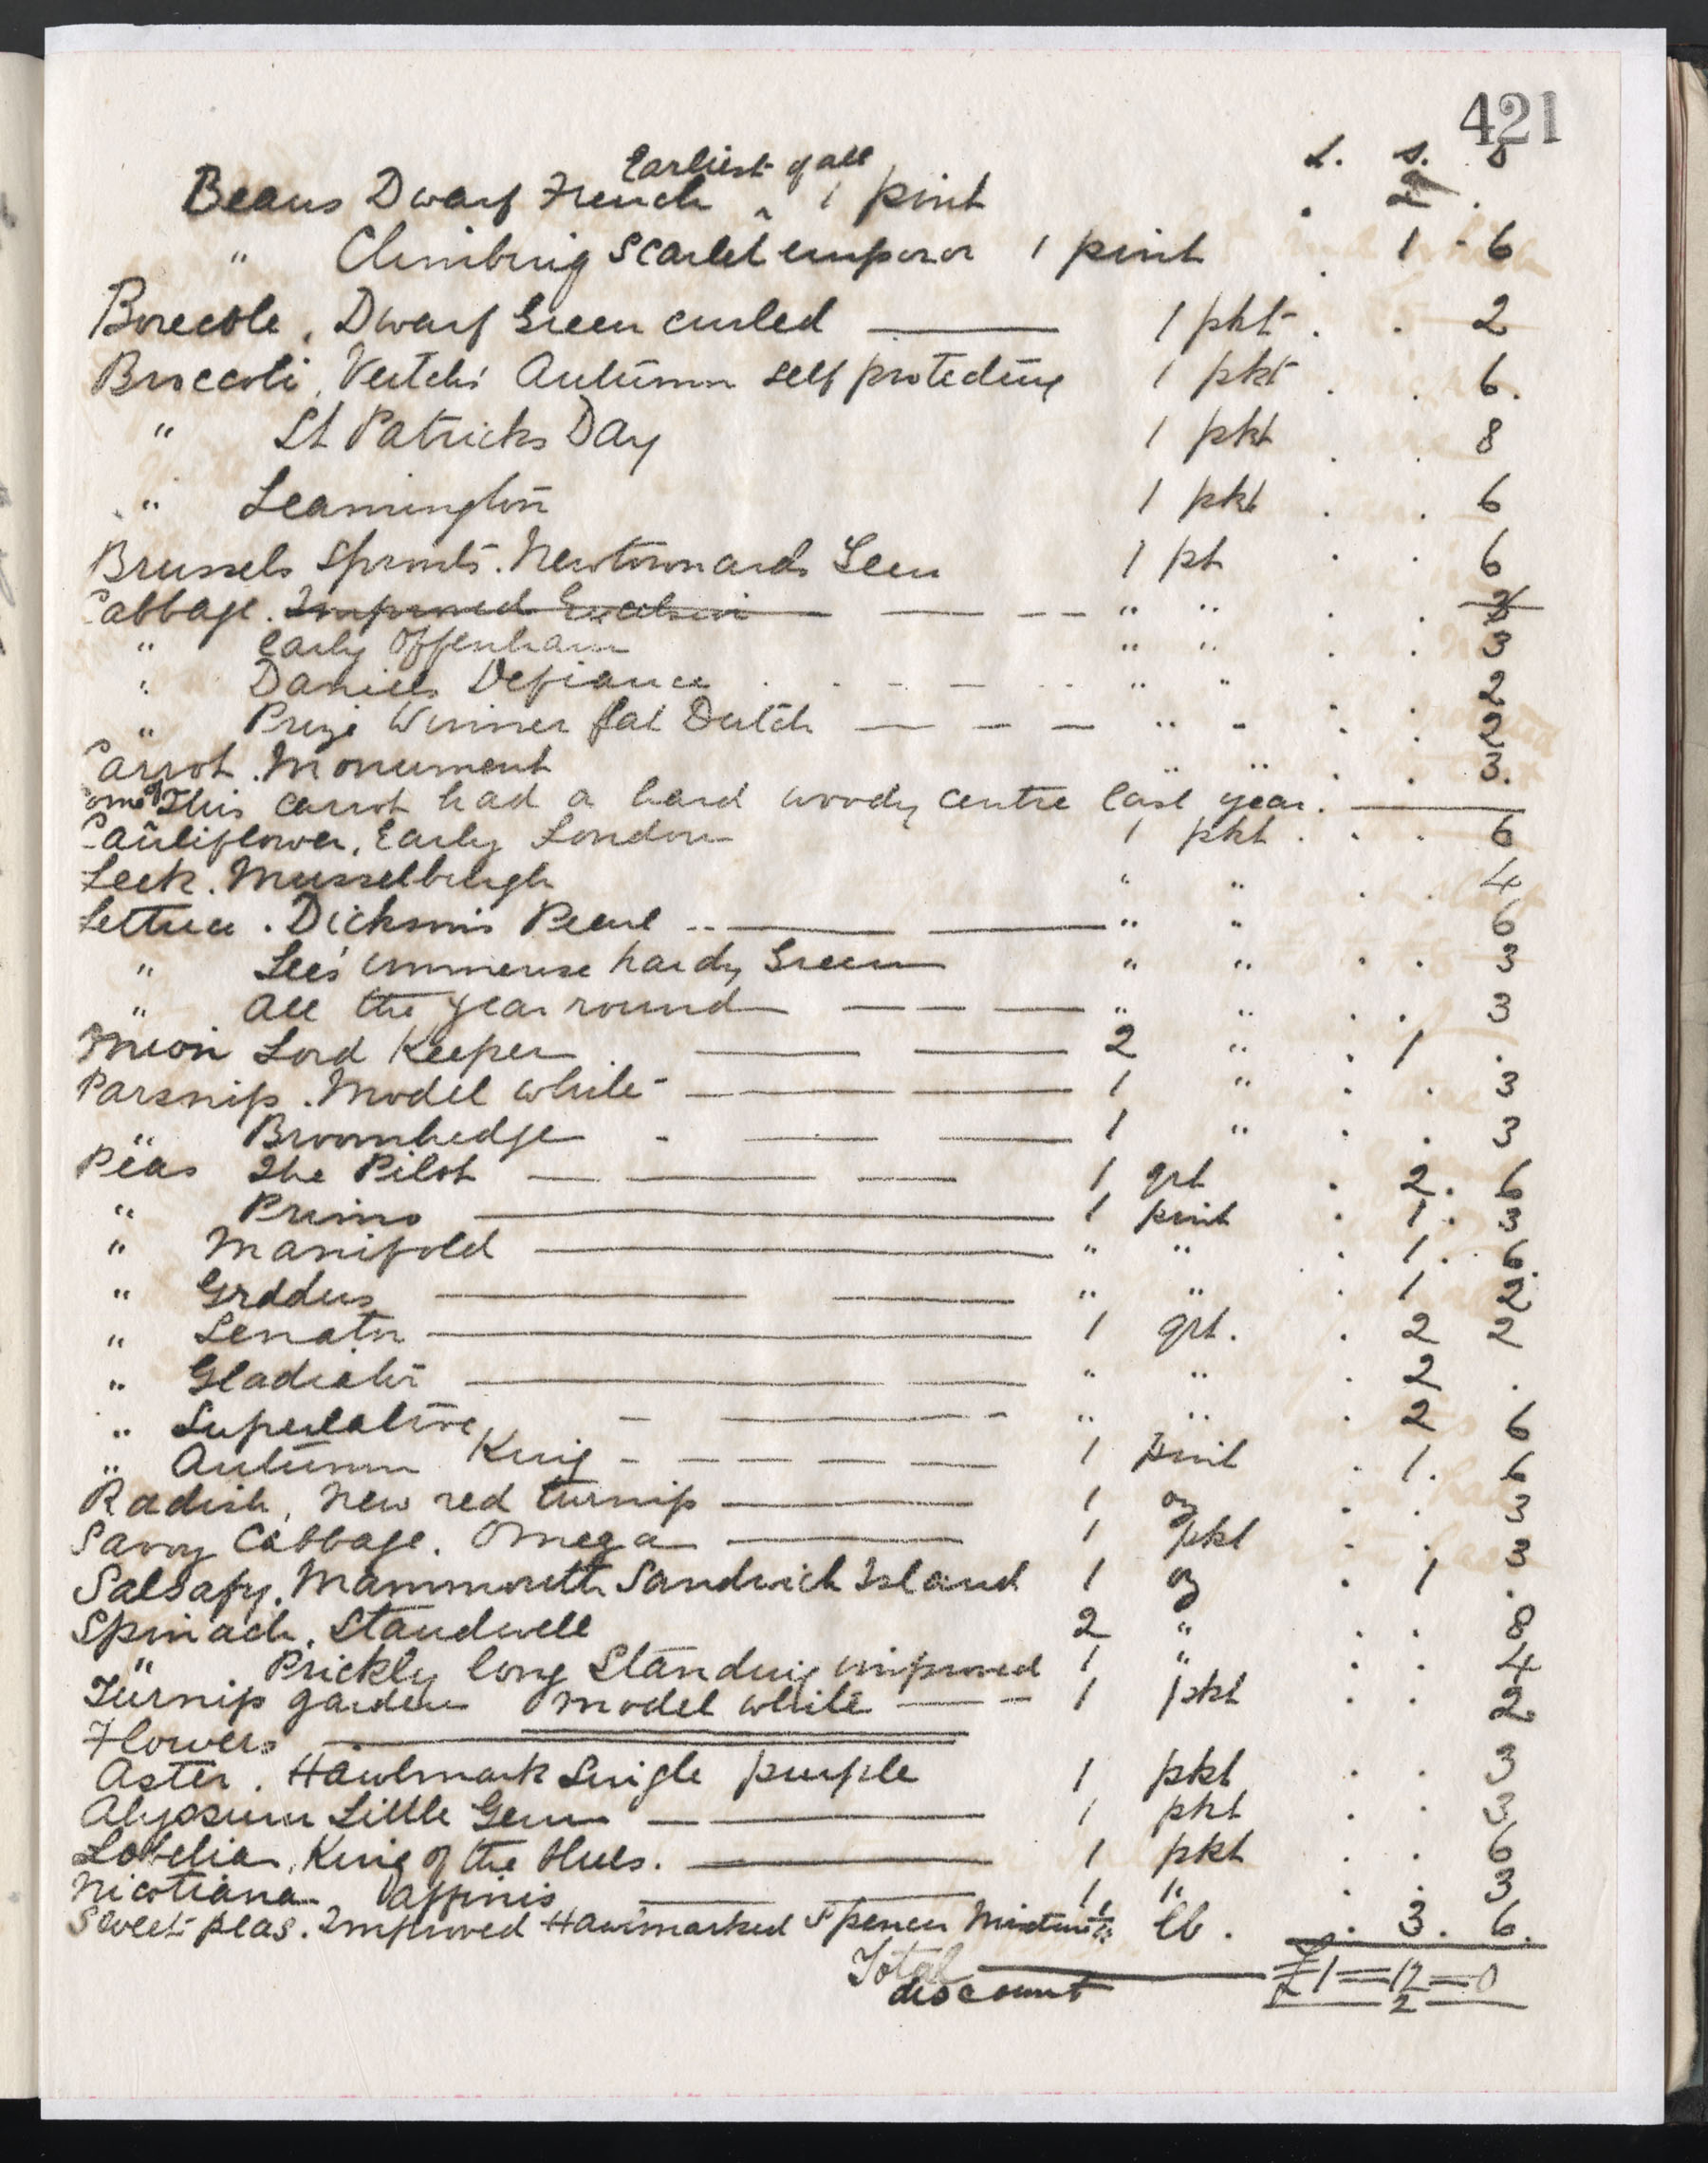 421
£. s. d
Earliest of all
Beans Dwarf French ^ 1 pint . 2 .
" Climbing Scarlet emperor 1 pint . 1 - 6
Borecole, Dwarf Green curled — 1 pkt . . 2
Broccoli, Veitch's Autumn self protecting 1 pkt . . 6.
" St Patricks Day 1 pkt . . 8
" Leamington 1 pkt . . 6
Brussels Sprouts. Newtownards Gem 1 pt . . 6
Cabbage. Improved Excelsior — — — " " . .
" Early Offenham " " . . 3
" Daniels Defiance . - - — - " " 2
" Prize Winner flat Dutch — — — " " . . 2
Carrot. Monument " " . . 3.
Some of This carrot had a hard woody centre last year. —
Cauliflower, Early London 1 pkt . . . 6
Leek. Musselburgh " " . . 4
Lettuce. Dickson's Pearl .. — — " " 6
" Lee's immense hardy Green " " . . 3
" All the year round — — — " " . . 3
Onion Lord Keeper . — — 2 " . 1 .
Parsnip. Model white — — 1 " . . 3
" Broomhedge - — — 1 " . . 3
Peas The Pilot — — — 1 qrt . 2. 6
" Primo — 1 pint . 1. 3
" Manifold — " " . 1. 6.
" Graddus — — " " . 1 2
" Senator — 1 qrt. . 2 2
" Gladiator — — " " . 2 .
" Superlative - — - " " . 2 6
" Autumn King - — — — — 1 pint . 1. 6
Radish, New red turnip — 1 oz . . 3
Savoy Cabbage. Omega — 1 pkt . . 3
Salsafy. Mammouth Sandwich Island 1 oz . 1 .
Spinach. Standwell 2 " . . 8
" Prickly long Standing improved 1 " . . 4
Turnip garden Model white — - 1 pkt . . 2
Flowers —
Aster. Hawlmark Single purple 1 pkt . . 3
Alyssum Little Gem — — 1 pkt . . 3
Lobelia, King of the blues. — 1 pkt . . 6
Nicotiana. affinis — — 1 " . . 3
Sweet peas. Improved Hawlmarked Spencer Mixture lb. . 3. 6.
Total — £1=12=0
discount 2